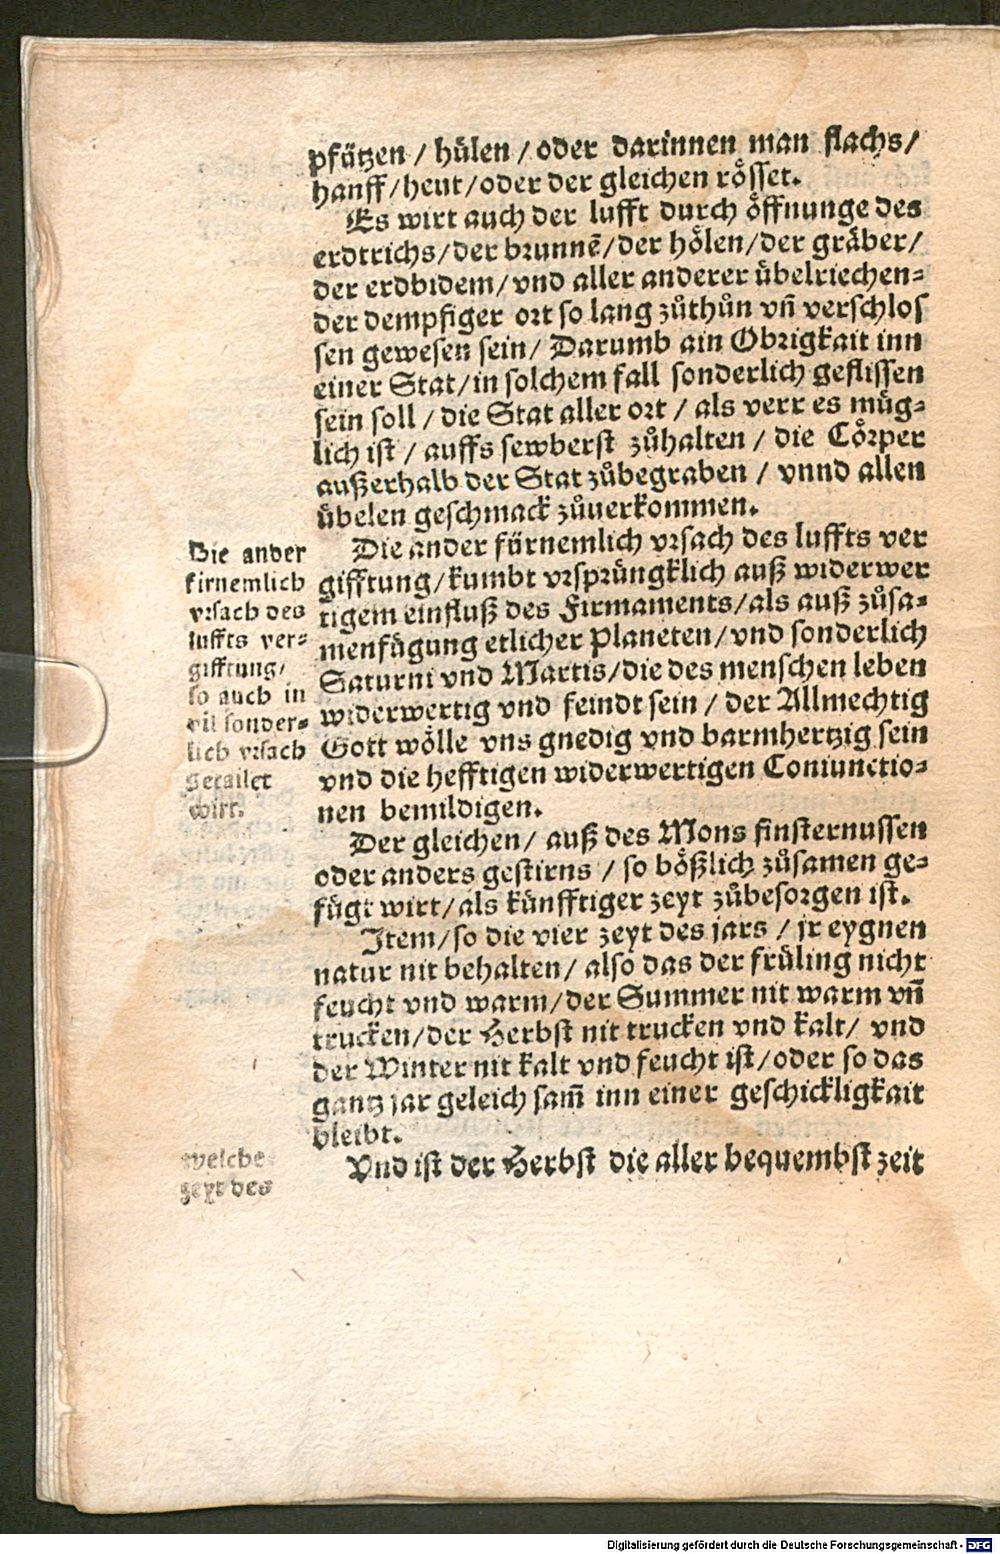 pfützen / hülen / oder darinnen man flachs /
hanff / heut / oder der gleichen rösset.
Es wirt auch der lufft durch öffnunge des
erdtrichs / der brunnē / der hölen / der gräber /
der erdbidem / vnd aller anderer übelriechen⸗
der dempfiger ort so lang zůthůn vñ verschlos
sen gewesen sein / Darumb ain Obrigkait inn
einer Stat / in solchem fall sonderlich geflissen
sein soll / die Stat aller ort / als verr es müg⸗
lich ist / auffs sewberst zůhalten / die Cörper
außerhalb der Stat zůbegraben / vnnd allen
übelen geschmack zůuerkommen.
Die ander
firnemlich
vrsach des
luffts ver⸗
gifftung /
so auch in
vil sonder⸗
lich vrsach
getailet
wirt.
Die ander fürnemlich vrsach des luffts ver
gifftung / kumbt vrsprüngklich auß widerwer
tigem einfluß des Firmaments / als auß zůsa⸗
menfügung etlicher Planeten / vnd sonderlich
Saturni vnd Martis / die des menschen leben
widerwertig vnd feindt sein / der Allmechtig
Gott wölle vns gnedig vnd barmhertzig sein
vnd die hefftigen widerwertigen Coniunctio⸗
nen bemildigen.
Der gleichen / auß des Mons finsternussen
oder anders gestirns / so bößlich zůsamen ge⸗
fügt wirt / als künfftiger zeyt zůbesorgen ist.
Item / so die vier zeyt des jars / jr eygnen
natur nit behalten / also das der früling nicht
feucht vnd warm / der Summer nit warm vñ
trucken / der Herbst nit trucken vnd kalt / vnd
der Winter nit kalt vnd feucht ist / oder so das
gantz jar geleich sam̄ inn einer geschickligkait
bleibt.
welche
zeyt des
Vnd ist der Herbst die aller bequembst zeit
Digitalisierung gefördert durch die Deutsche Forschungsgemeinschaft - DFG